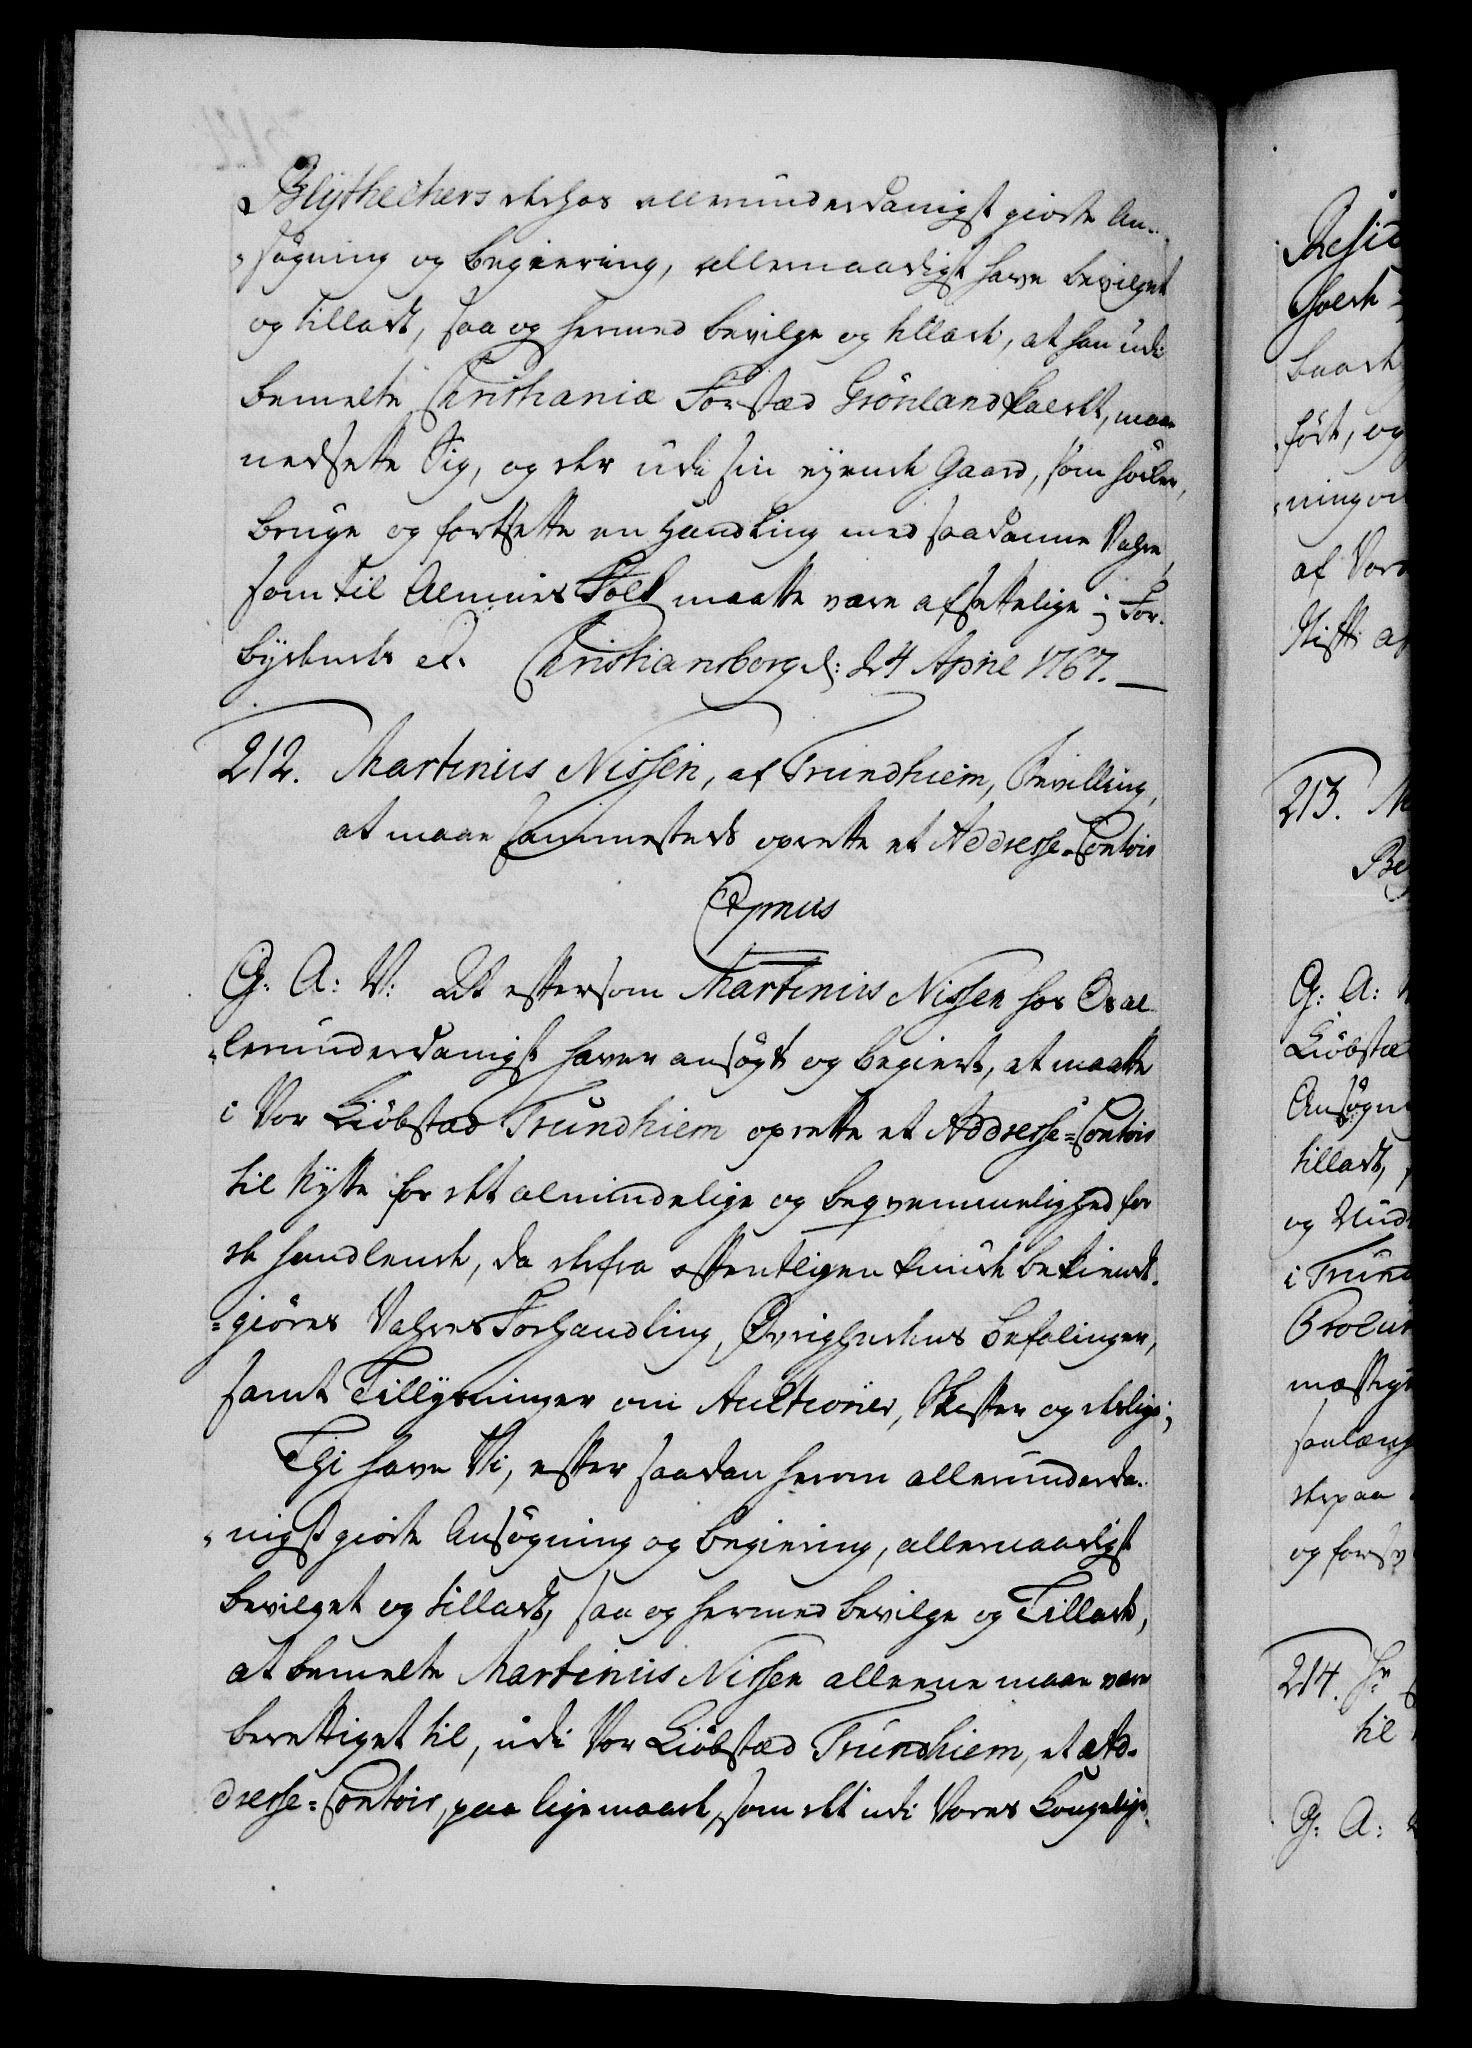 Blythechers derhos allerunderdanigst giorte An-
søgning og begiering, allernaadigst have bevilget
og tilladt, saa og hermed bevilge og tillade, at han udi
bemelte Christhaniæ Forstæd Grönland kaldet, maa
nedsette Sig, og der udi sin eyende Gaard, som
bruge og fortsette en Handling med saadanne Vahre,
som til Almues Folk maatte være afsettelige; For-
bydende etc. Christiansborg d: 24 April 1767.
212. Martinus Nissen, af Trundhiem, Bevilling,
at maae sammesteds oprette et Addresse-Contoir
Copmus
G: A: V: At eftersom Martinus Nissen hos Os al-
lerunderdanigst haver ansøgt og begiert, at maatte
i Vor Kiöbstæd Trundhiem oprette et Addresse-Contoir
til Nytte for det almindelige og beqvemmelighed for
de handlende, da derfra offentligen kunde bekiendt-
giöres Vahres Forhandling, Øvrighedens befalinger,
samt Tillysninger om Auctioner, Skifter og deslige;
Thi have Vi, efter saadan herom allerunderda-
nigst giorte Ansøgning og begiering, allernaadigst
bevilget og tilladt, saa og hermed bevilge og Tillade,
at bemelte Martinus Nissen alleene maae være
berettiget til, udi Vor Kiöbstæd Trundhiem, et Ad-
dresse-Contoir, paa lige maade, som det udi Vores Kongelige
213. M
G: A:
Kiöbstæ
Ansøgn
tilladt,
i Trund
214.
til
G: A: